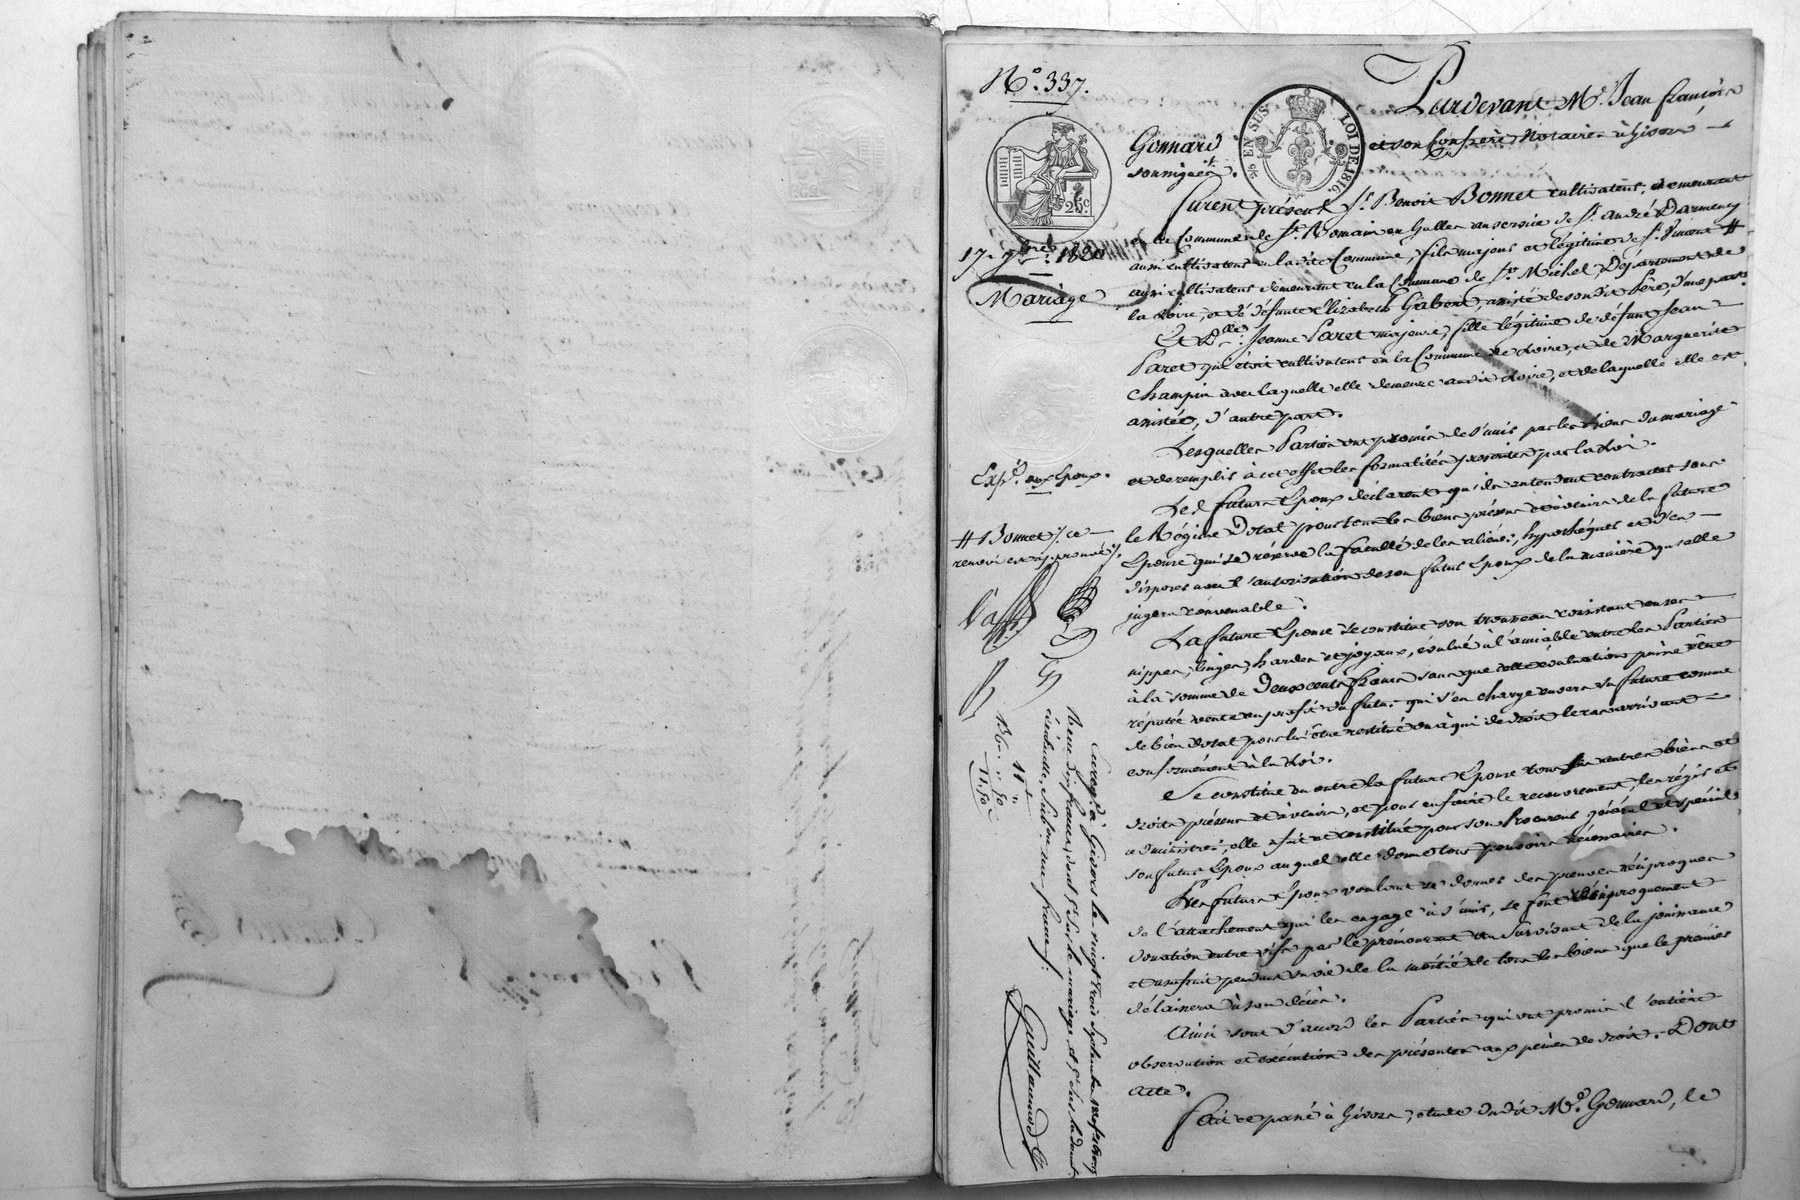 N° 337.
Pardevant Me. Jean françois
Gonnard et son Confrère Notaires à Givors
soussignés.
EN SUS LOI DE 1816.
25c
furent présents Sr. Benoit Bonnet cultivateur, demeurant
en la Commune de St. Romain en Gallex au service de Sr. andré Darmency
17 7bre 1820
aussi cultivateur en ladite Commune, fils majeur et légitime de Sr. Vincent #
Mariage
aussi cultivateur demeurant en la Commune de St. Michel, Département de
la Loire, et de défunte Elizabeth Gabert, assisté de son dit Père, d'une part.
Et Dlle. Jeanne Paret majeure, fille légitime de défunt Jean
Paret qui étoit cultivateur en la Commune de Loire, et de Marguerite
Champin avec laquelle elle demeure audit Loire, et de laquelle elle est
assistée, d'autre part.
Lesquelles Parties ont promis de s'unir par les liens du mariage
et de remplir à cet effet les formalités prescrites par la Loi.
Expd. aux Epoux.
Les futurs Epoux déclarent qu'ils entendent contracter sous
le Régime Dotal pour tous les biens présens et à venir de la future
Epouse qui se réserve la faculté de les aliéner, hypothéquer et d'en
disposer avec l'autorisation de son futur Epoux de la manière qu'elle
jugera convenable.
# Bonnet ./. ce
renvoi est approuvé ./.
La future Epouse se constitue son trousseau consistant en ses
nippes, linges, hardes et joyaux, évalué à l'amiable entre les Parties
à la somme de Deux cents francs sans que cette évaluation puisse être
réputée vente au profit du futur qui s'en charge envers sa future comme
de bien dotal pour lui être restitué ou à qui de droit le cas arrivant
conformément à la Loi.
Se constitue en outre la future Epouse tous ses autres biens et
droits présens et à venir, et pour en faire le recouvrement, les régir et
administrer, elle fait et constitue pour son Procureur général et spécial
son futur Epoux auquel elle donne tous pouvoirs nécessaires.
Les futurs Epoux voulant se donner des preuves réciproques
de l'attachement qui les engage à s'unir, se font réciproquement
donation entre vifs par le prémourant au survivant de la jouissance
et usufruit pendant sa vie de la moitié de tous les biens que le premier
délaissera à son décès.
Ainsi sont d'accord les Parties qui ont promis l'entière
observation et exécution des présentes aux peines de droit. Dont
acte.
fait et passé à Givors, étude dudit Me. Gonnard, le
Enregé. à Givors le vingt trois septembre
Reçu dix francs, dont 5f. sur le mariage, et 5f. sur la donat.
éventuelle, Subvon. un franc.
Guillaumod